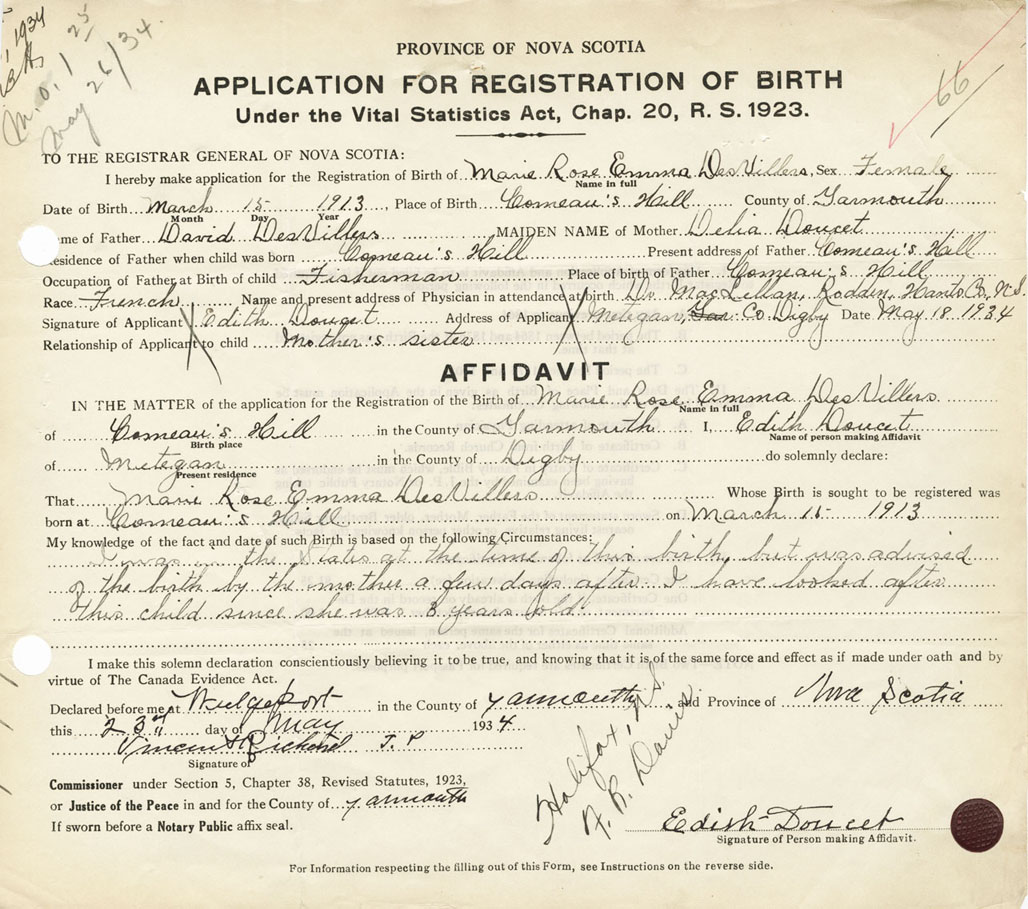 1934
M.O. 1 25
May 26/34.
66
PROVINCE OF NOVA SCOTIA
APPLICATION FOR REGISTRATION OF BIRTH
Under the Vital Statistics Act, Chap. 20, R. S. 1923.
TO THE REGISTRAR GENERAL OF NOVA SCOTIA:
I hereby make application for the Registration of Birth of Marie Rose Emma DesVillers, Sex Female
Name in full
Date of Birth March 15 1913, Place of Birth Comeau's Hill County of Yarmouth
Month Day Year
me of Father David DesVillers MAIDEN NAME of Mother Delia Doucet
esidence of Father when child was born Comeau's Hill Present address of Father Comeau's Hill
Occupation of Father at Birth of child Fisherman Place of birth of Father Comeau's Hill
Race French Name and present address of Physician in attendance at birth Dr. MacLellan, Hants Co., N.S.
Signature of Applicant X Edith Doucet Address of Applicant X Metegan, Yar. Co. Digby Date May 18, 1934
Relationship of Applicant to child Mother's sister
AFFIDAVIT
IN THE MATTER of the application for the Registration of the Birth of Marie Rose Emma DesVillers
Name in full
of Comeau's Hill in the County of Yarmouth I, Edith Doucet
Birth place Name of person making Affidavit
of Metegan in the County of Digby do solemnly declare:
Present residence
That Marie Rose Emma DesVillers Whose Birth is sought to be registered was
born at Comeau's Hill on March 15 1913
My knowledge of the fact and date of such Birth is based on the following Circumstances:
I was in the States at the time of this birth, but was advised
of the birth by the mother a few days after. I have looked after
this child since she was 3 years old.
I make this solemn declaration conscientiously believing it to be true, and knowing that it is of the same force and effect as if made under oath and by
virtue of The Canada Evidence Act.
Declared before me at Wedgeport in the County of Yarmouth and Province of Nova Scotia
this 23rd day of May 1934
Vincent Richard J. P
Signature of
Commissioner under Section 5, Chapter 38, Revised Statutes, 1923,
or Justice of the Peace in and for the County of Yarmouth
If sworn before a Notary Public affix seal.
Halifax, N.S.
F. R. Davis
Edith Doucet
Signature of Person making Affidavit.
For Information respecting the filling out of this Form, see Instructions on the reverse side.